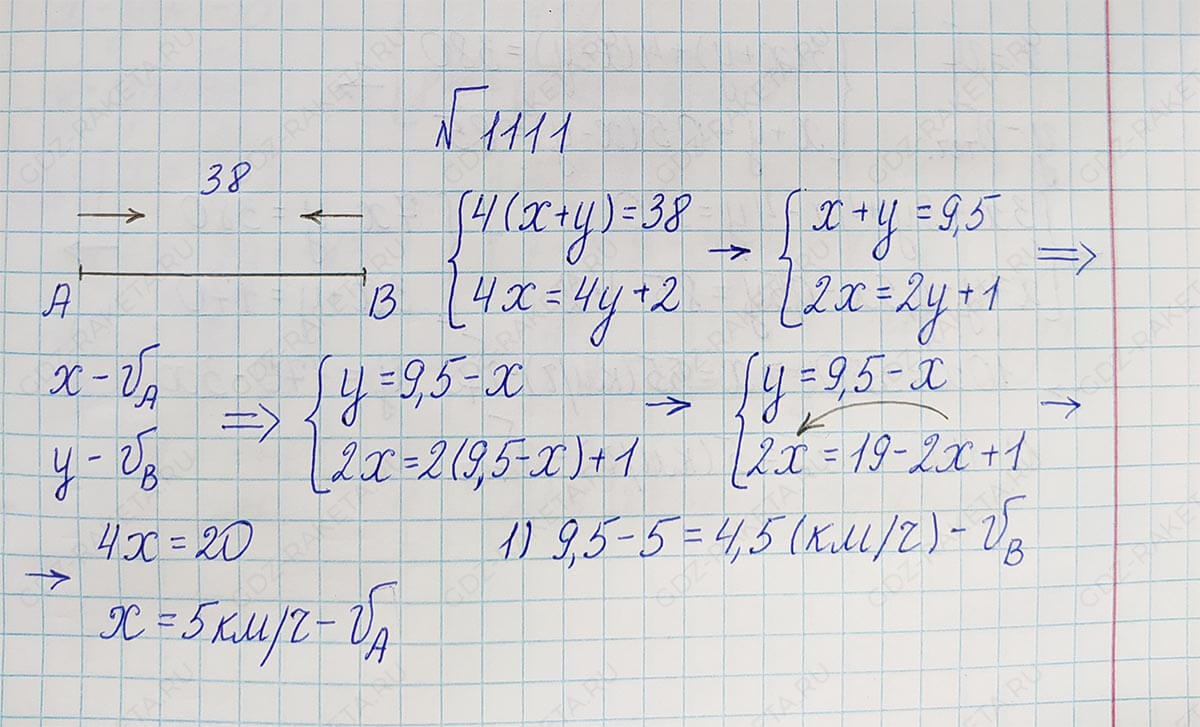 №1111
38
A B
{4(x+y)=38
4x=4y+2 → {x+y=9,5
2x=2y+1 =>
x - v_A
y - v_B
=> {y=9,5-x
2x=2(9,5-x)+1 → {y=9,5-x
2x=19-2x+1 →
→ 4x=20
x=5км/ч-v_A
1) 9,5-5=4,5(км/ч)-v_B
GDZ-RAKETA.RU